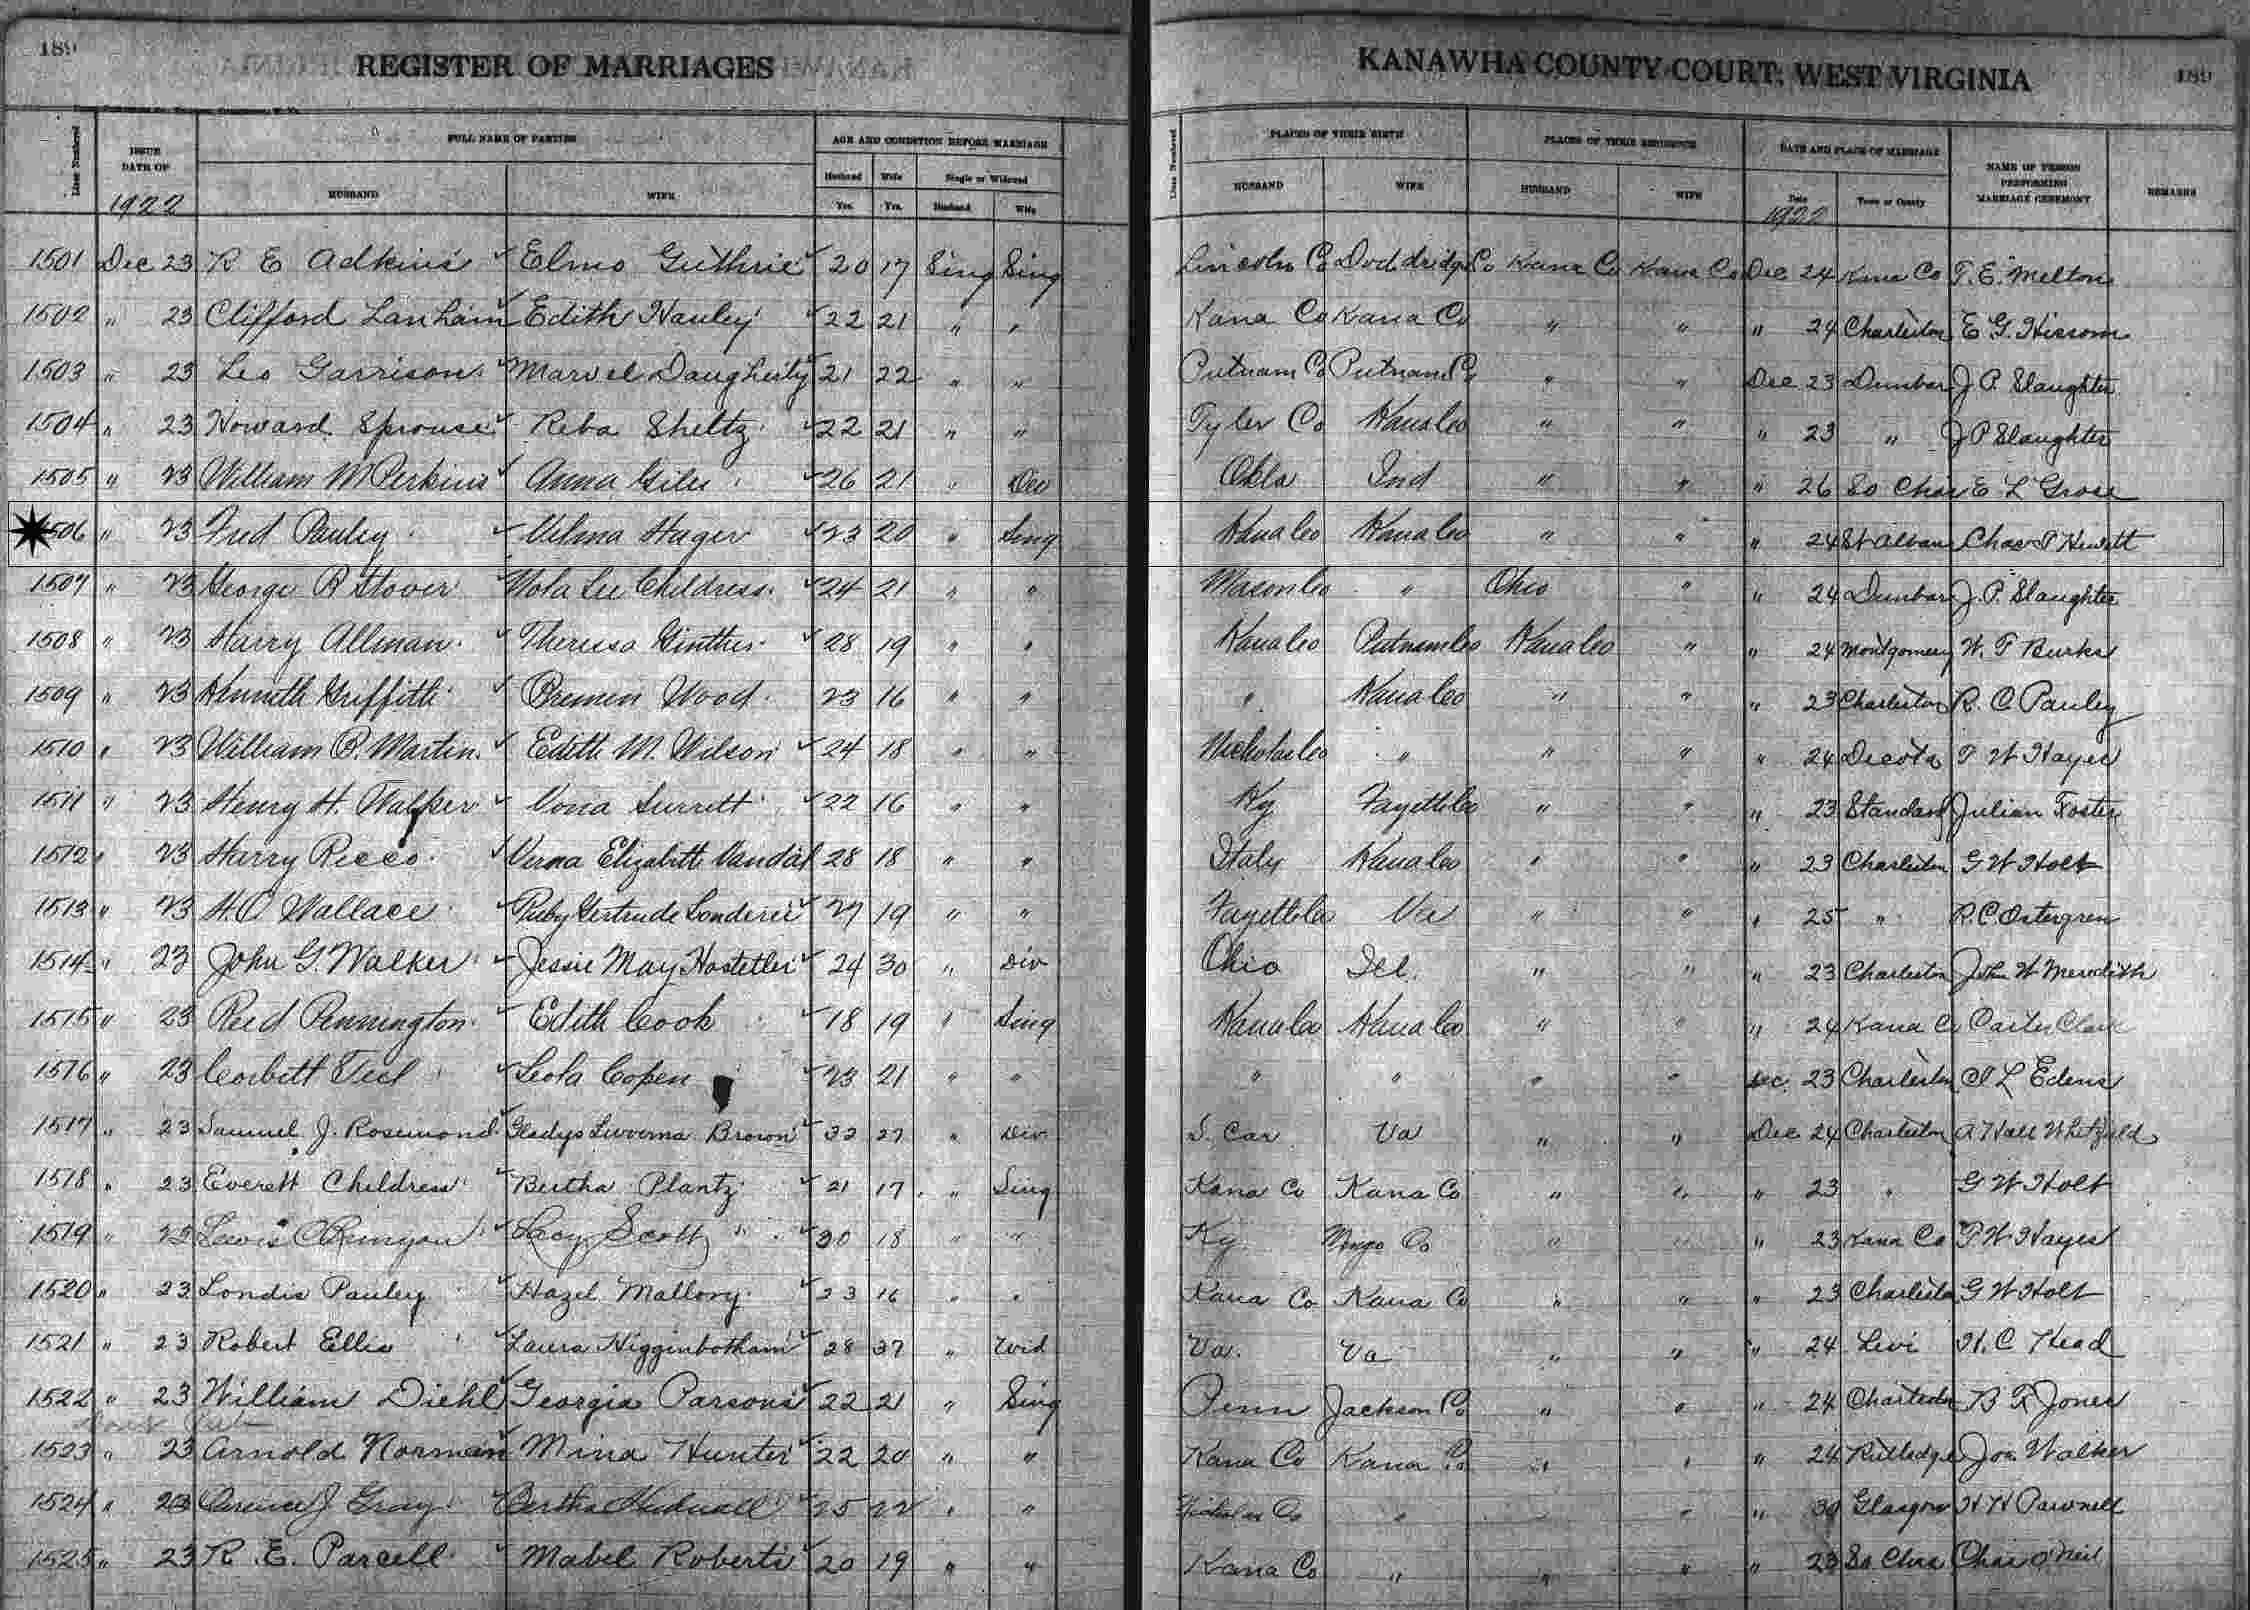 189
REGISTER OF MARRIAGES
KANAWHA COUNTY COURT, WEST VIRGINIA
189
Lines Numbered
ISSUE DATE OF
FULL NAME OF PARTIES
AGE AND CONDITION BEFORE MARRIAGE
Lines Numbered
PLACES OF THEIR BIRTH
PLACES OF THEIR RESIDENCE
DATE AND PLACE OF MARRIAGE
NAME OF PERSON PERFORMING MARRIAGE CEREMONY
REMARKS
HUSBAND WIFE Husband Wife Single or Widowed HUSBAND WIFE HUSBAND WIFE Date Town or County
Yrs. Yrs. Husband Wife
1922 1922
1501 Dec 23 R E Adkins Elmo Guthrie 20 17 Sing Sing Lincoln Co Doddridge Co Kana Co Kana Co Dec 24 Kana Co T. E. Melton
1502 " 23 Clifford Lanham Edith Hauley 22 21 " " Kana Co Kana Co " " " 24 Charleston E G. Hissom
1503 " 23 Leo Garrison Marvel Daugherty 21 22 " " Putnam Co Putnam Co " " Dec 23 Dunbar J P. Slaughter
1504 " 23 Howard Sprouse Reba Sheltz 22 21 " " Tyler Co Kana Co " " " 23 " J P Slaughter
1505 " 23 William M Perkins Anna Giles 26 21 " Div Okla Ind " " " 26 So Chas E. L Grose
1506 " 23 Fred Pauley Velma Hager 23 20 " Sing Kana Co Kana Co " " " 24 St Albans Chas P Hewitt
1507 " 23 George B Stover Wola Lee Childress 24 21 " " Mason Co " Ohio " " 24 Dunbar J. P. Slaughter
1508 " 23 Harry Allman Theressa Ginther 28 19 " " Kana Co Putnam Co Kana Co " " 24 Montgomery W. F Burks
1509 " 23 Kenneth Griffith Wood 23 16 " " " Kana Co " " " 23 Charleston R. C. Pauley
1510 " 23 William B. Martin Edith M. Wilson 24 18 " " Nicholas Co " " " " 24 Decota T W Hayes
1511 " 23 Henry H. Walker Vona Surrett 22 16 " " Ky Fayette Co " " " 23 Standard Julian Foster
1512 " 23 Harry Ricco Verna Elizabeth Vandal 28 18 " " Italy Kana Co " " " 23 Charleston G W Holt
1513 " 23 H. O Wallace Ruby Gertrude Londeree 27 19 " " Fayette Co Va " " " 25 " R. C. Ostergren
1514 " 23 John G. Walker Jessie May Hostetler 24 30 " Div Ohio Ill. " " " 23 Charleston John W Meredith
1515 " 23 Reed Pennington Edith Cook 18 19 " Sing Kana Co Kana Co " " " 24 Kana Co Carter Clark
1516 " 23 Corbett Teel Leola Copen 23 21 " " " " " " Dec 23 Charleston L Edens
1517 " 23 Samuel J. Rosemond Gladys Luverna Brown 32 27 " Div S. Car Va " " Dec 24 Charleston A Hall Whitfield
1518 " 23 Everett Childress Bertha Plantz 21 17 " Sing Kana Co Kana Co " " " 23 " G W Holt
1519 " 23 Lewis Runyon Lacy Scott 30 18 " " Ky Mingo Co " " " 23 Kana Co T W Hayes
1520 " 23 Londis Pauley Hazel Mallory 23 16 " " Kana Co Kana Co " " " 23 Charleston G W Holt
1521 " 23 Robert Ellis Laura Higginbotham 28 37 " Wid Va. Va " " " 24 Levi H. C Head
1522 " 23 William Diehl Georgia Parsons 22 21 " Sing Penn Jackson Co " " " 24 Charleston B F Jones
1523 " 23 Arnold Norman Mina Hunter 22 20 " " Kana Co Kana Co " " " 24 Rutledge Jos. Walker
1524 " 23 Clarence J Gray Bertha Hudnall 25 22 " " Nicholas Co " " " 30 Glasgow H H Pawnell
1525 " 23 R. E. Parcell Mabel Roberts 20 19 " " Kana Co " " " " 23 So Chas Chas O'Neil